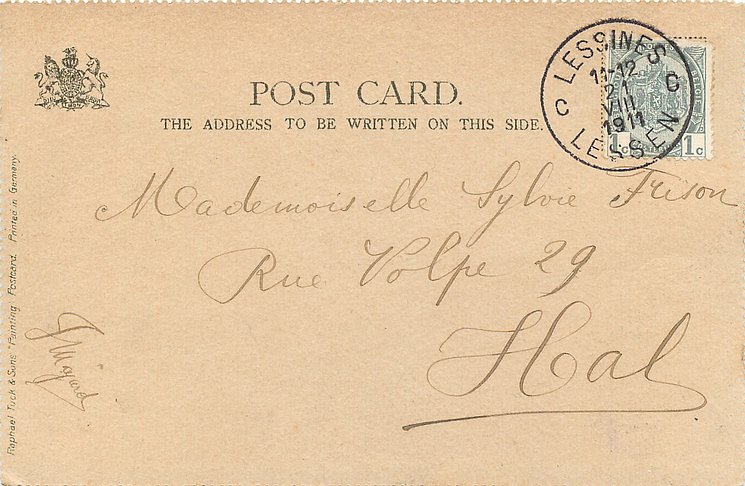 LESSINES
11-12
21
VIII
1911
C C
LESSEN
1c 1c
POST CARD.
THE ADDRESS TO BE WRITTEN ON THIS SIDE.
Mademoiselle Sylvie Frison
Rue Volpe 29
Hal
Raphael Tuck & Sons' "Painting" Postcard. Printed in Germany.